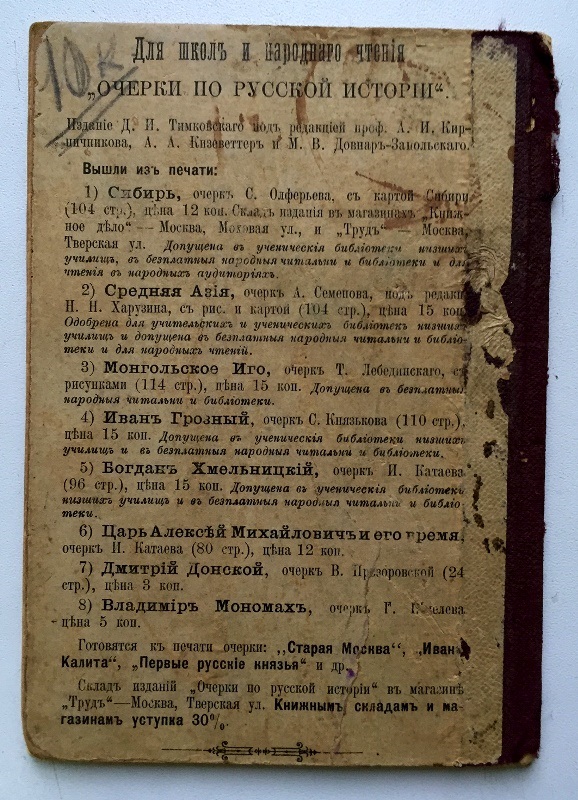 10к
Для школъ и народнаго чтенія
„ОЧЕРКИ ПО РУССКОЙ ИСТОРІИ“.
Изданіе Д. И. Тимковскаго подъ редакціей проф. А. И. Кир-
пичникова, А. А. Кизеветтера и М. В. Довнаръ-Запольскаго.
Вышли изъ печати:
1) Сибирь, очеркъ С. Олферьева, съ картой Сибири
(104 стр.), цѣна 12 коп. Складъ изданія въ магазинахъ „Книж-
ное дѣло“ — Москва, Моховая ул., и „Трудъ“ — Москва,
Тверская ул. Допущена въ ученическія библіотеки низшихъ
училищъ, въ безплатныя народныя читальни и библіотеки и для
чтенія въ народныхъ аудиторіяхъ.
2) Средняя Азія, очеркъ А. Семенова, подъ редакц.
Н. Н. Харузина, съ рис. и картой (104 стр.), цѣна 15 коп.
Одобрена для учительскихъ и ученическихъ библіотекъ низшихъ
училищъ и допущена въ безплатныя народныя читальни и библіо-
теки и для народныхъ чтеній.
3) Монгольское Иго, очеркъ Т. Лебединскаго, съ
рисунками (114 стр.), цѣна 15 коп. Допущена въ безплатныя
народныя читальни и библіотеки.
4) Иванъ Грозный, очеркъ С. Князькова (110 стр.),
цѣна 15 коп. Допущена въ ученическія библіотеки низшихъ
училищъ и въ безплатныя народныя читальни и библіотеки.
5) Богданъ Хмельницкій, очеркъ И. Катаева
(96 стр.), цѣна 15 коп. Допущена въ ученическія библіотеки
низшихъ училищъ и въ безплатныя народныя читальни и библіо-
теки.
6) Царь Алексѣй Михайловичъ и его время,
очеркъ И. Катаева (80 стр.), цѣна 12 коп.
7) Дмитрій Донской, очеркъ В. Прозоровской (24
стр.), цѣна 3 коп.
8) Владиміръ Мономахъ, очеркъ
цѣна 5 коп.
Готовятся къ печати очерки: „Старая Москва“, „Иванъ
Калита“, „Первые русскіе князья“ и др.
Складъ изданій „Очерки по русской исторіи“ въ магазинѣ
„Трудъ“—Москва, Тверская ул. Книжнымъ складамъ и ма-
газинамъ уступка 30%.